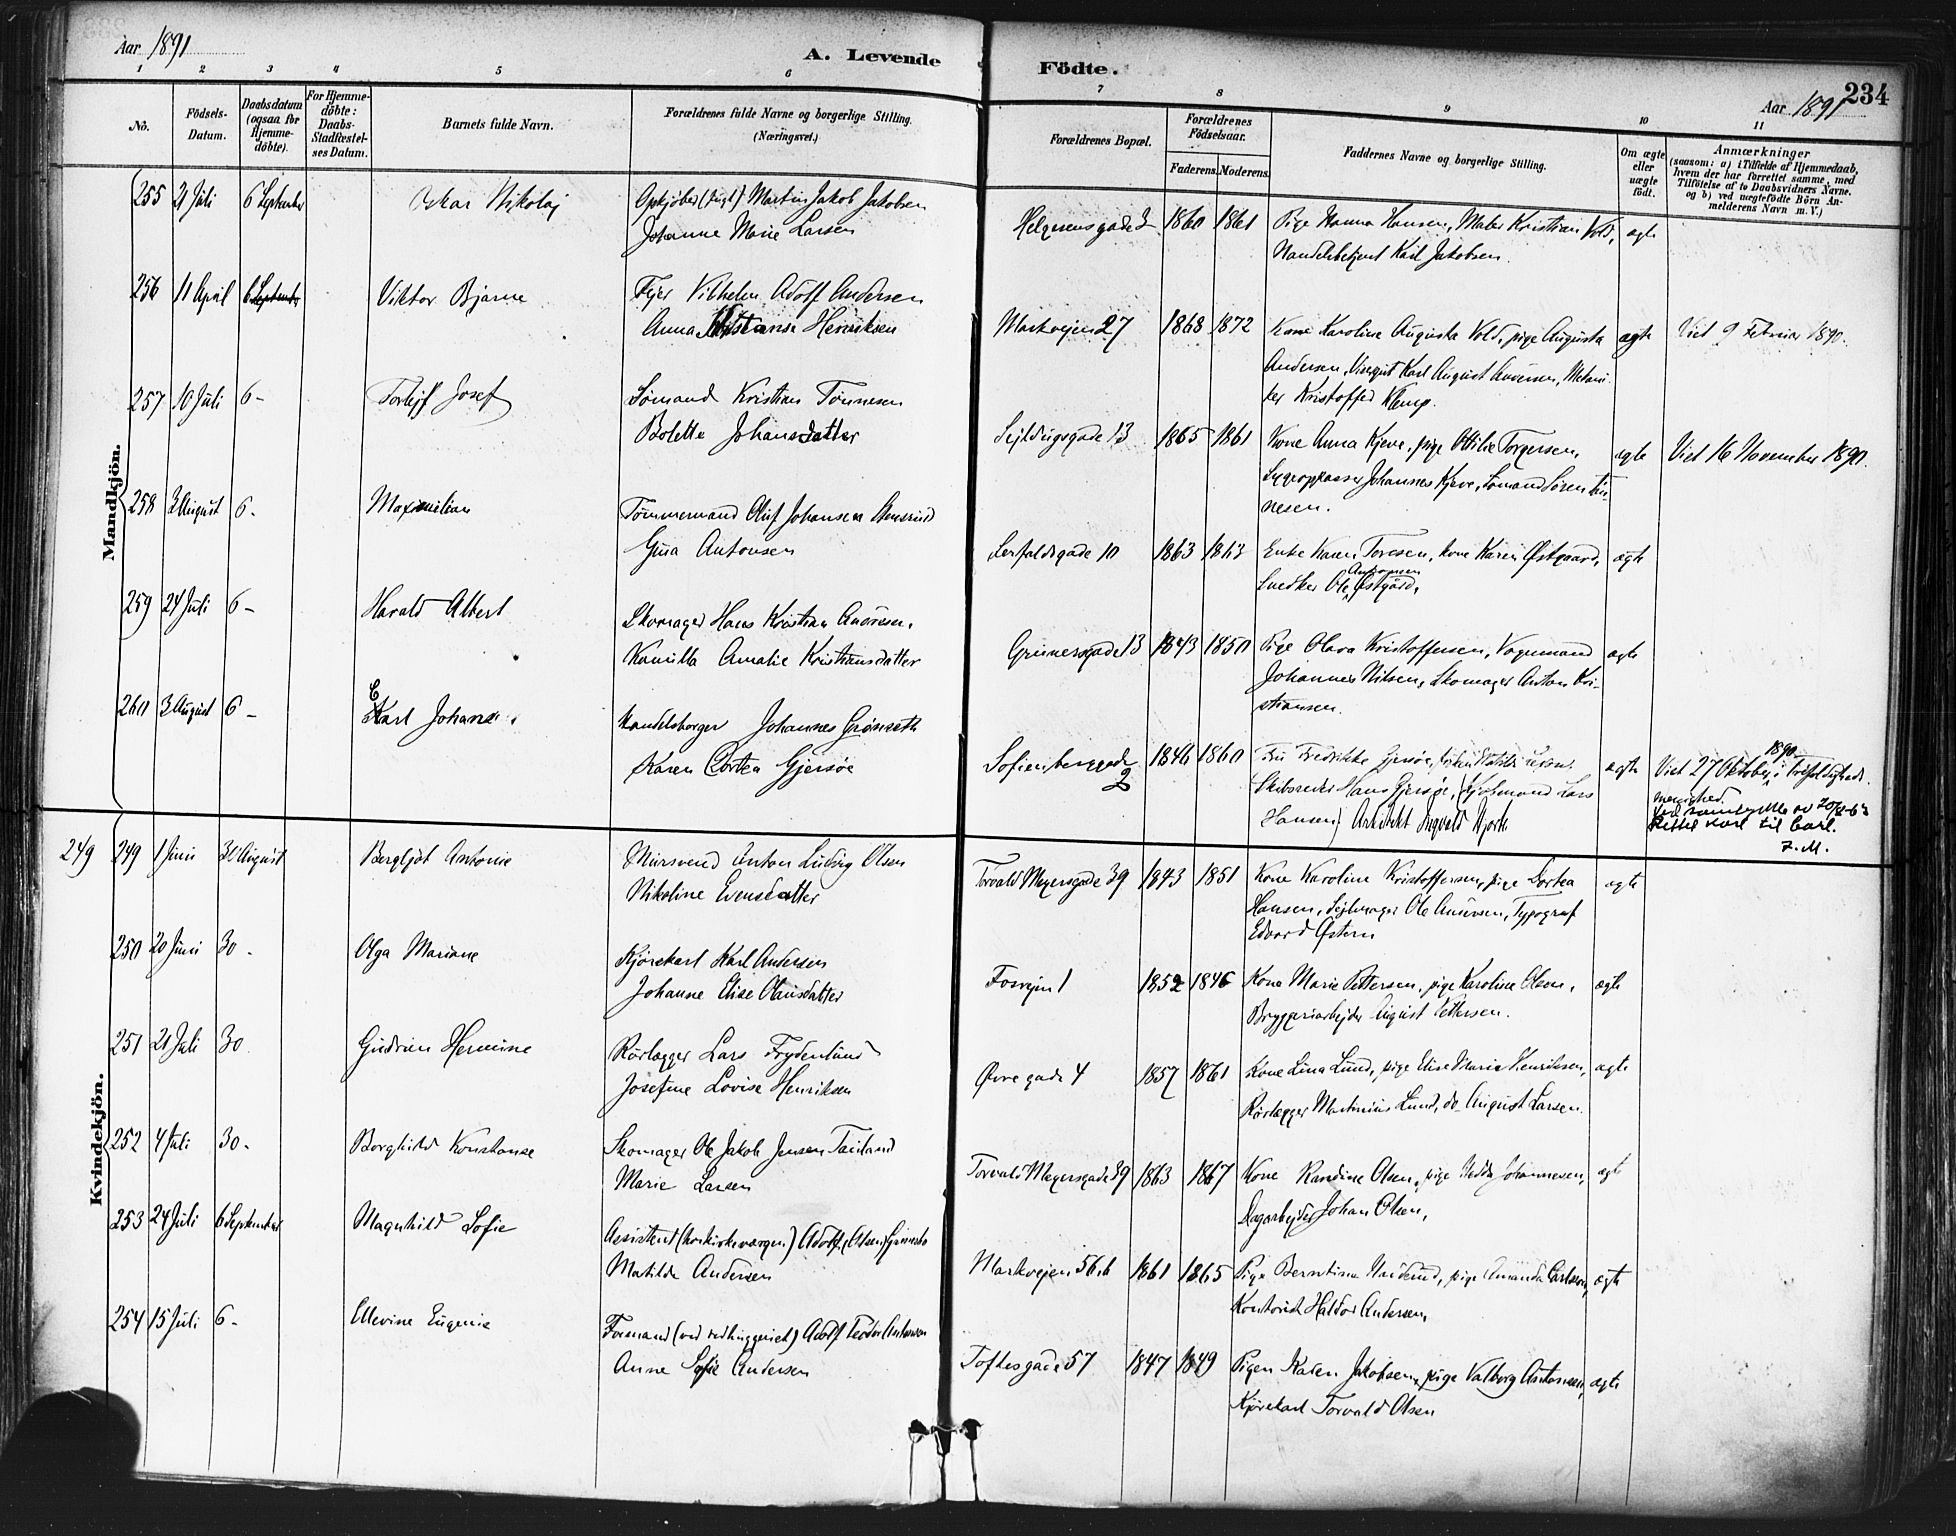 Aar 1891
A. Levende
Födte.
234
Aar 1891
1 2 3 4 5 6 7 8 9 10 11
No.
Födsels-Datum.
Daabsdatum (ogsaa for Hjemme-döbte).
For Hjemme-döbte: Daabs-Stadfæstel-ses Datum.
Barnets fulde Navn.
Forældrenes fulde Navne og borgerlige Stilling. (Næringsvei.)
Forældrenes Bopæl.
Forældrenes Födselsaar.
Faderens. Moderens.
Faddernes Navne og borgerlige Stilling.
Om ægte eller uægte födt.
Anmærkninger
(saasom: a) i Tilfælde af Hjemmedaab, hvem der har forrettet samme, med Tilföielse af to Daabsvidners Navne. og b) ved uægtefödte Börn An-melderens Navn m. V.)
Mandkjön.
255 21 Juli 6 September Oskar Nikolaj
Opkjøber Martin Jakob Jakobsen
Johanne Marie Larsen
Helgesensgade 2 1860 1861
Pige Hanna Hansen, Maler Kristian Vold,
Handelsbetjent Karl Jakobsen.
ægte
256 11 April 6 September Viktor Bjarne
Fejer Vilhelm Adolf Andersen
Anna Konstanse Henriksen
Markvejen 27 1868 1872
Kone Karoline Augusta Vold, pige Augusta
Andersen, Visergut Karl August Andersen,
Kristoffer Klemp.
ægte
Viet 9 Februar 1890.
257 10 Juli 6 - Torlejf Josef
Sømand Kristian Tønnesen
Bolette Johansdatter
Sejldugsgade 13 1865 1861
Kone Anna Kjeve, pige Ottilie Torgersen,
Sygepasser Johannes Kjeve, Sømand Søren Tøn-
nesen.
ægte
Viet 16 November 1890.
258 3 August 6 - Maximilian
Tømmermand Oluf Johansen
Gina Antonsen
Lerfaldsgade 10 1863 1863
Enke Karen Toresen, kone Karen Østgaard,
Snedker Ole Andersen Østgård,
ægte
259 24 Juli 6 - Harald Albert
Skomager Hans Kristian Andresen.
Kamilla Amalie Kristiansdatter
Grünersgade 13 1843 1850
Pige Olava Kristoffersen, Vognmand
Johannes Nilsen, Skomager Anton Kri-
stiansen.
ægte
260 3 August 6 - C Karl Johan
Handelsborger Johannes Grønseth
Karen Dortea Gjersøe
Sofienberggade 2 1846 1860
Fru Fredrikke Gjersøe,
Skibsreder Hans Gjersøe, Kjøbmand Lars
Hansen, Arkitekt Ingvald Hjorth
ægte
Viet 27 Oktober 1890 i Trefoldigheds
menighed.
Rettet Karl til Carl.
Kvindekjön.
249 249 1 Juni 30 August Bergljot Antonie
Mursvend Anton Ludvig Olsen
Nikoline Evensdatter
Torvald Meyersgade 39 1843 1851
Kone Karoline Kristoffersen, pige Dortea
Hansen, Sejlmager Ole Andersen, Typograf
Edvard Østern
ægte
250 20 Juni 30 - Olga Mariane
Kjørekarl Karl Andersen
Johanne Elise Olausdatter
Fosvejen 1 1852 1846
Kone Marie Pettersen, pige Karoline Olsen,
Bryggeriarbejder August Pettersen.
ægte
251 21 Juli 30 Gudrun Hermine
Rørlægger Lars Frydenlund
Josefine Lovise Henriksen
Øvregade 4 1857 1861
Kone Lina Lund, pige Elise Marie Henriksen,
Rørlægger Martinius Lund, do August Larsen.
ægte
252 4 Juli 30 - Borghild Konstanse
Skomager Ole Jakob Jensen
Marie Larsen
Torvald Meyersgade 39 1863 1867
Kone Randine Olsen, pige Hedda Johannesen,
Dagarbejder Johan Olsen,
ægte
253 24 Juli 6 September Magnhild Sofie
Assistent Adolf (Olsen)
Matilde Andersen
Markvejen 56b 1861 1865
Pige Berntine, pige Amanda Carlsson,
Kontorist Haldor Andersen,
ægte
254 15 Juli 6 - Ellevine Eugenie
Formand Adolf Teodor Andersen
Anne Sofie Andersen
Toftesgade 57 1847 1849
Pigen Karen Jakobsen, pige Valborg Antonsen,
Kjørekarl Torvald Olsen
ægte